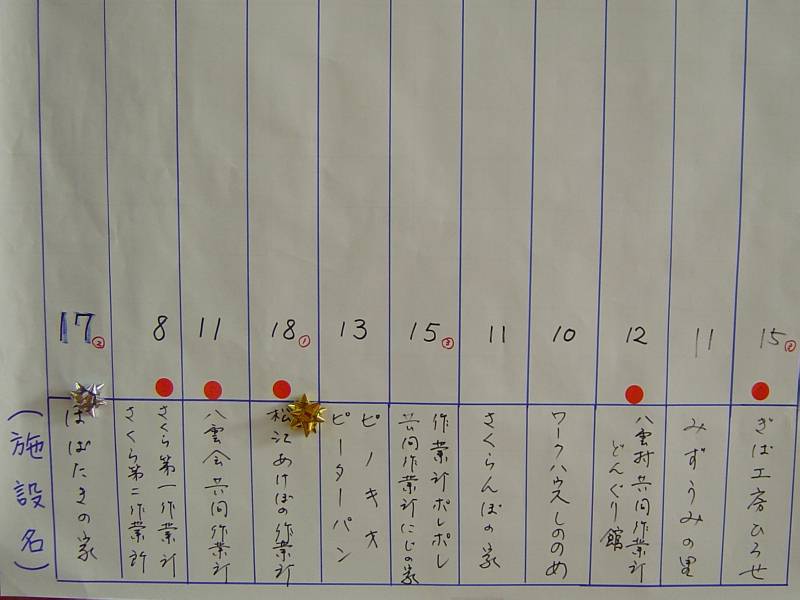 17 ② 8 11 18 ① 13 15 ③ 11 10 12 11 15
ぎば工房ひろせ
みずうみの里
八雲村共同作業所
どんぐり館
ワークハウスしののめ
さくらんぼの家
作業所ポレポレ
共同作業所にじの家
ピノキオ
ピーターパン
松江あけぼの作業所
八雲会共同作業所
さくら第一作業所
さくら第二作業所
はばたきの家
(施設名)